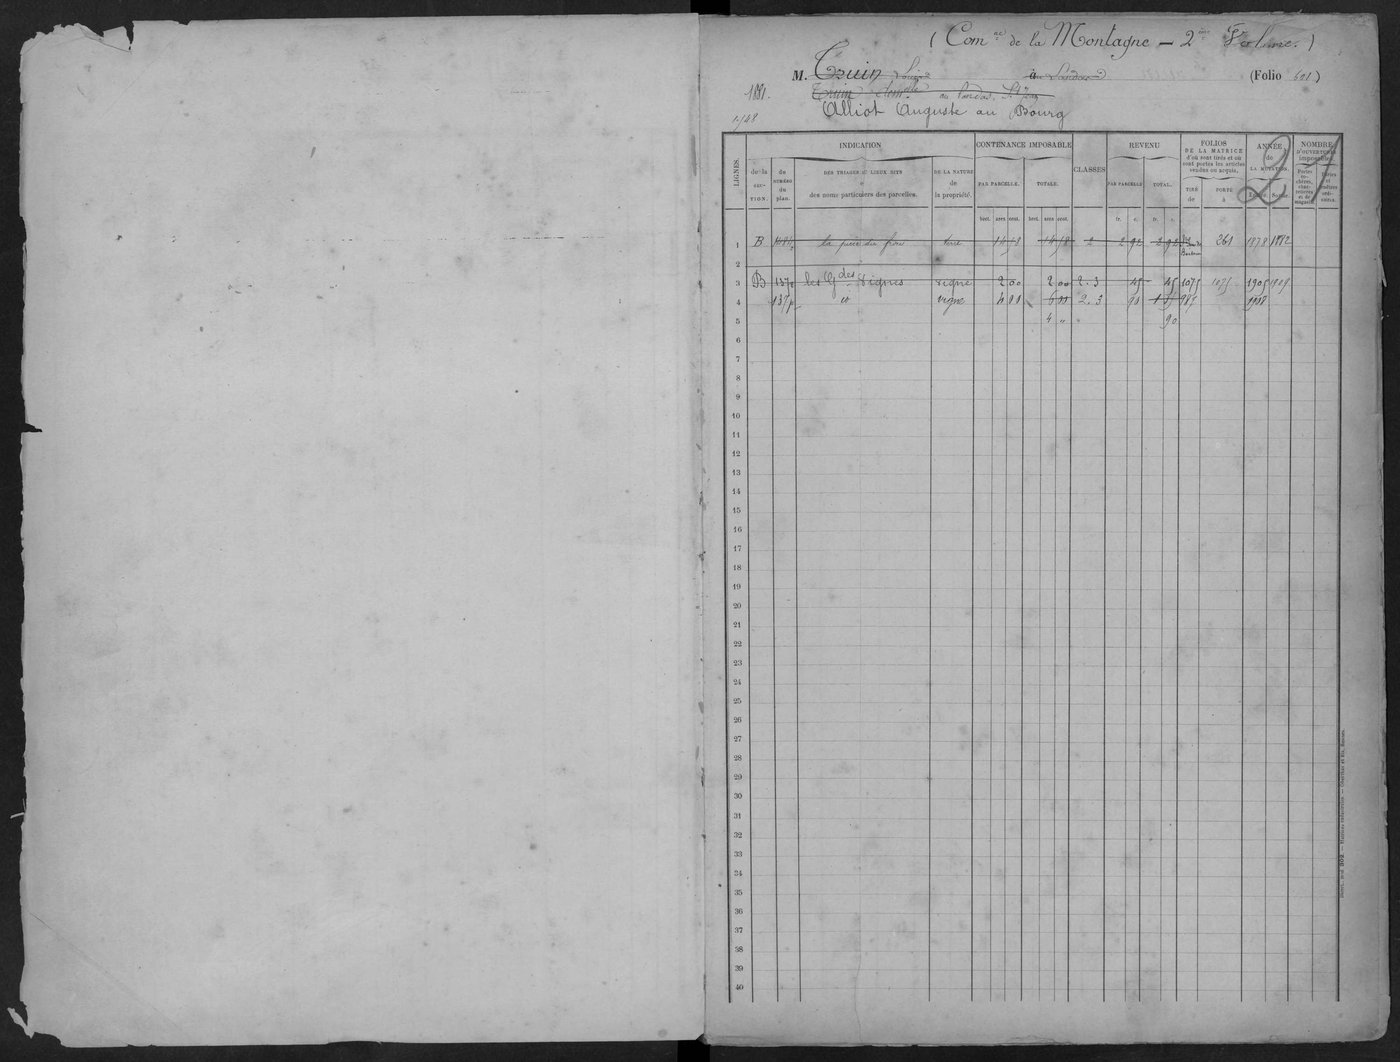 ( Com.ne de la Montagne — 2ème Volume. )
M. Truin Louis au (Folio 601 )
1881. Truin au
1948 Alliot Auguste au Bourg
LIGNES.
INDICATION
CONTENANCE IMPOSABLE
CLASSES
REVENU
FOLIOS
DE LA MATRICE
d'où sont tirés et où
sont portés les articles
vendus ou acquis.
ANNÉE
de
LA MUTATION.
NOMBRE
D'OUVERTURES
imposables.
de la
SEC-
TION.
du
NUMÉRO
du
plan.
DES TRIAGES OU LIEUX DITS
des noms particuliers des parcelles.
DE LA NATURE
de
la propriété.
PAR PARCELLE.
TOTALE.
PAR PARCELLE
TOTAL.
TIRÉ
de
PORTÉ
à
Entrée. Sortie.
Portes
co-
chères,
char-
retières
et de
magasin.
Portes
et
fenêtres
ordi-
naires.
27
hect. ares cent. hect. ares cent. fr. c. fr. c.
1 B la terre 14 58 14 58 2 2 92 2 92 261 1878 1882
2
3 B 137p les Gdes Vignes vigne 2 00 2 00 2.3 45 45 1075 1075 1905 1909
4 137p id vigne 4 00 6 00 2.3 90 1 35 987 1908
5 4 „ 90
6
7
8
9
10
11
12
13
14
15
16
17
18
19
20
21
22
23
24
25
26
27
28
29
30
31
32
33
34
35
36
37
38
39
40